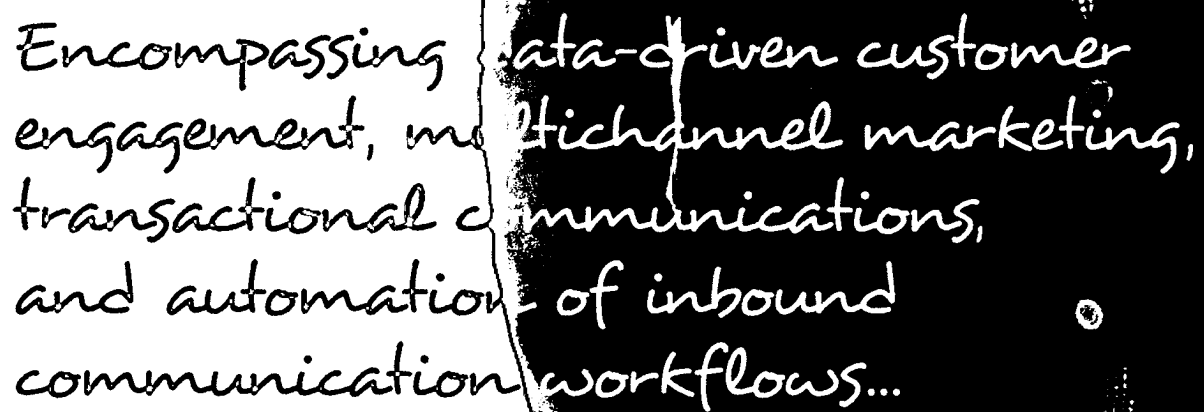 Encompassing data-driven customer
engagement, multichannel marketing,
transactional communications,
and automation of inbound
communication workflows...